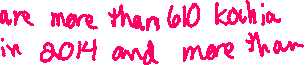 are more than 610 Kachia
in 2014 and more than